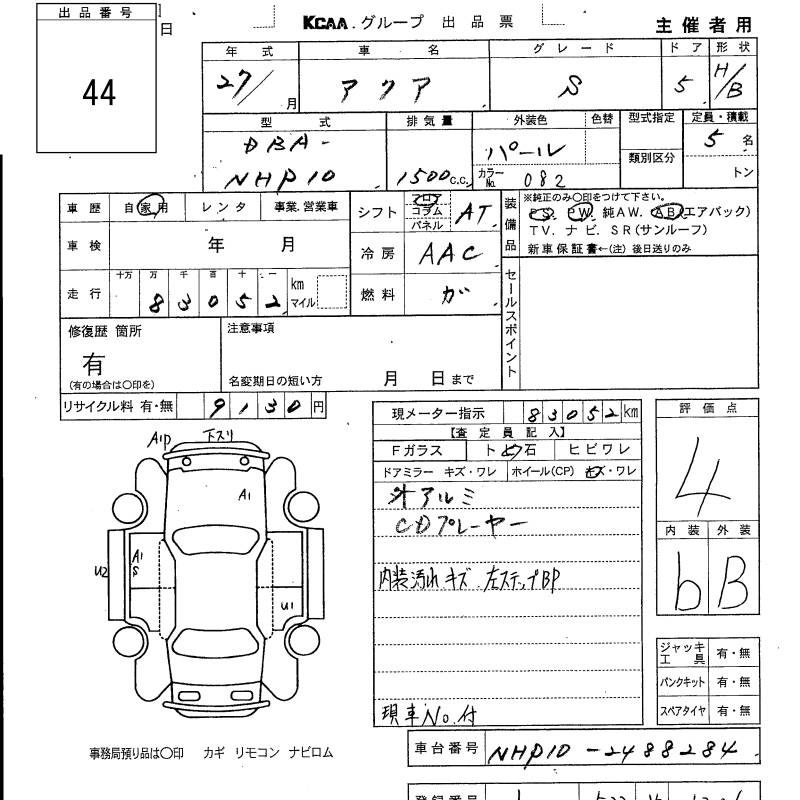 出品番号
44
日
KCAA.グループ 出品票
主催者用
年式 車名 グレード ドア 形状
27/ 月 アクア S 5 H/B
型式 排気量 外装色 色替 型式指定 定員・積載
DBA-
NHP10 1500c.c. パール
カラーNo. 082
類別区分
5名
トン
車歴 自家用 レンタ 事業.営業車
シフト フロア コラム パネル AT
装備品
※純正のみ○印をつけて下さい。
PS. PW. 純AW. AB(エアバック)
TV. ナビ. SR(サンルーフ)
新車保証書←(注) 後日送りのみ
車検 年 月
冷房 AAC
走行 十万 万 千 百 十 一
83052 km マイル
燃料 ガ
セールスポイント
修復歴 箇所
有
(有の場合は○印を)
注意事項
名変期日の短い方 月 日まで
リサイクル料 有・無 9130円
現メーター指示 83052km
【査定員記入】
Fガラス トビ石 ヒビワレ
ドアミラー キズ・ワレ ホイール(CP) キズ・ワレ
社外アルミ
CDプレーヤー
内装汚れ キズ 左ステップBP
現車No.付
評価点
4
内装 外装
b B
ジャッキ工具 有・無
パンクキット 有・無
スペアタイヤ 有・無
A1P 下スリ
A1
U2
A1
S
U1
事務局預り品は○印 カギ リモコン ナビロム
車台番号 NHP10-2488284